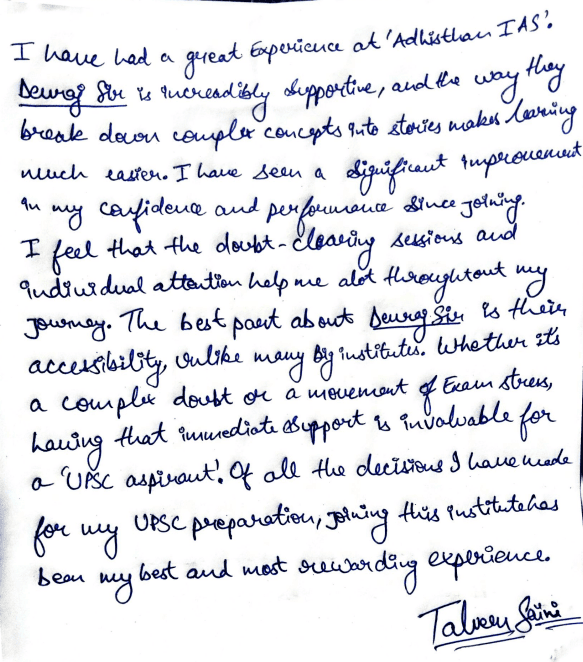 I have had a great Experience at 'Adhisthan IAS'.
Devraj Sir is increadibly supportive, and the way they
break down complex concepts into stories makes learning
much easier. I have seen a significant improvement
in my confidence and performance since joining.
I feel that the doubt-clearing sessions and
individual attention help me alot throughtout my
journey. The best part about Devraj Sir is their
accessibility, unlike many big institutes. Whether it's
a complex doubt or a movement of Exam stress,
having that immediate support is invaluable for
a 'UPSC aspirant'. Of all the decisions I have made
for my UPSC preparation, joining this institute has
been my best and most rewarding experience.
Talveen Saini